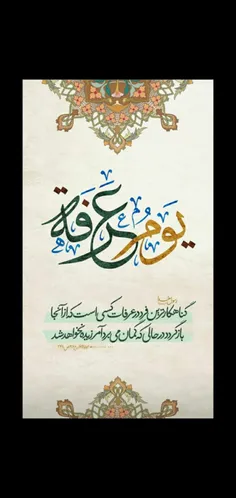 یوم عرفة
رسول خدا
گناهکارترین فرد در عرفات کسی است که از آنجا
بازگردد در حالی که گمان می برد آمرزیده نخواهد شد